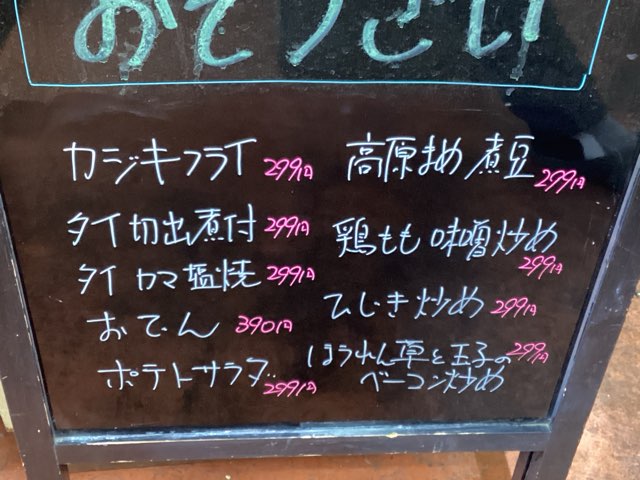 おそうざい
カジキフライ 299円
タイ切出煮付 299円
タイカマ塩焼 299円
おでん 390円
ポテトサラダ 299円
高原まめ煮豆 299円
鶏もも味噌炒め 299円
ひじき炒め 299円
ほうれん草と玉子の 299円
ベーコン炒め